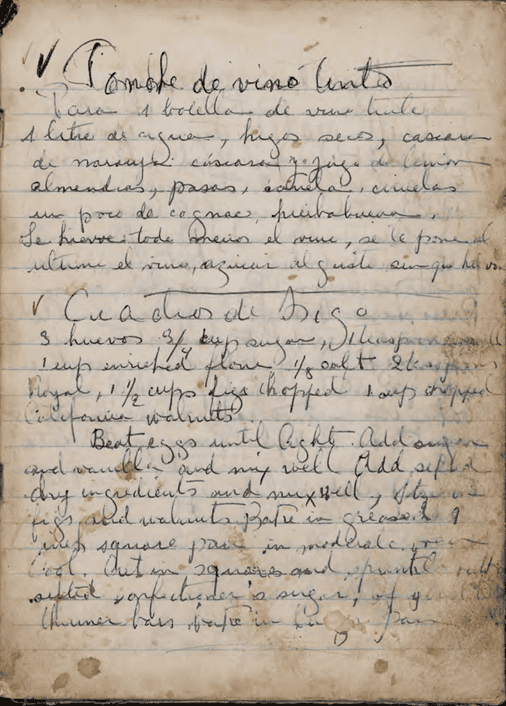 Ponche de vino tinto
Para 1 botella de vino tinto
1 litro de agua, higos secos, cascara
de naranja cascara y jugo de limon
almendras, pasas, canela, ciruelas
un poco de cognac, hierbabuena.
Se hierve todo menos el vino, se le pone al
ultimo el vino, azucar al gusto sin que hierva
Cuadros de Higo
3 huevos 3/4 cup sugar, 1 teaspoon
1 cup enriched flour 1/8 salt 2 teaspoons
Royal, 1 1/2 cups figs chopped 1 cup chopped
California walnuts
Beat eggs until light. Add sugar
and vanilla and mix well Add sifted
dry ingredients and mix well, Stir in
figs and walnuts Bake in greased 9
inch square pan in moderate oven
Cool. Cut in squares and sprinkle with
sifted confectioner's sugar, if
thinner bars, bake in pan